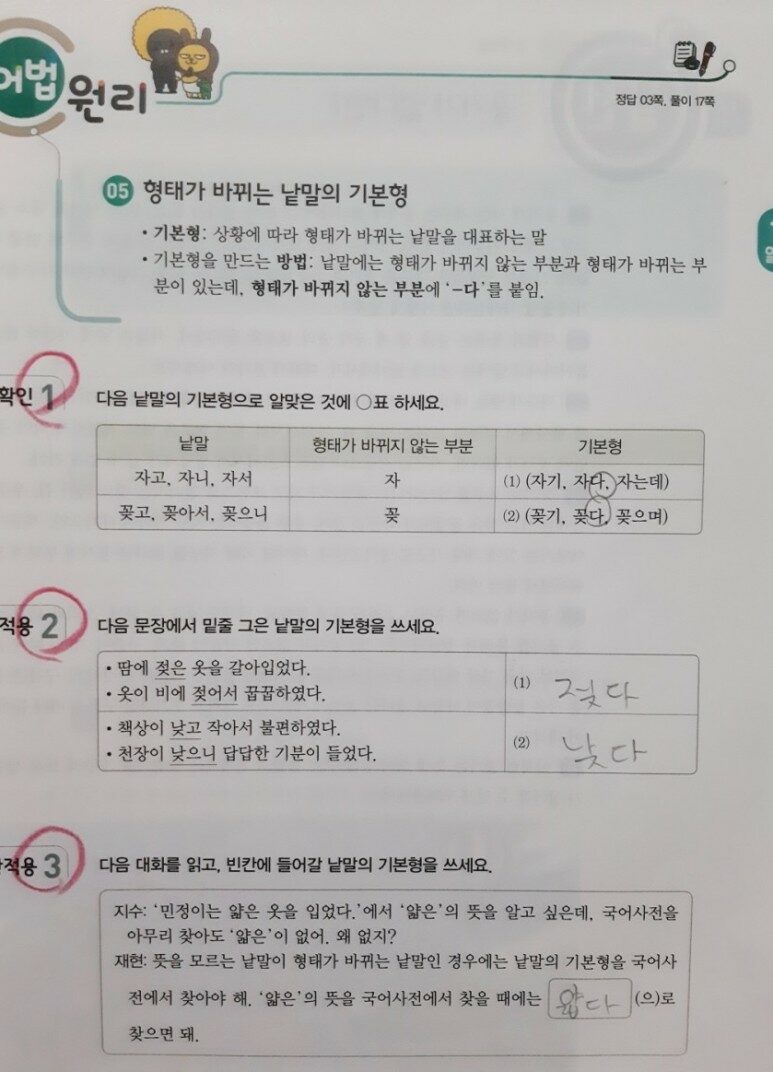 어법 원리
정답 03쪽, 풀이 17쪽
05 형태가 바뀌는 낱말의 기본형
• 기본형: 상황에 따라 형태가 바뀌는 낱말을 대표하는 말
• 기본형을 만드는 방법: 낱말에는 형태가 바뀌지 않는 부분과 형태가 바뀌는 부
분이 있는데, 형태가 바뀌지 않는 부분에 ‘-다’를 붙임.
확인 1 다음 낱말의 기본형으로 알맞은 것에 ○표 하세요.
낱말 형태가 바뀌지 않는 부분 기본형
자고, 자니, 자서 자 (1) (자기, 자다, 자는데)
꽂고, 꽂아서, 꽂으니 꽂 (2) (꽂기, 꽂다, 꽂으며)
적용 2 다음 문장에서 밑줄 그은 낱말의 기본형을 쓰세요.
• 땀에 젖은 옷을 갈아입었다.
• 옷이 비에 젖어서 꿉꿉하였다.
(1) 젖다
• 책상이 낮고 작아서 불편하였다.
• 천장이 낮으니 답답한 기분이 들었다.
(2) 낮다
적용 3 다음 대화를 읽고, 빈칸에 들어갈 낱말의 기본형을 쓰세요.
지수: ‘민정이는 얇은 옷을 입었다.’에서 ‘얇은’의 뜻을 알고 싶은데, 국어사전을
아무리 찾아도 ‘얇은’이 없어. 왜 없지?
재현: 뜻을 모르는 낱말이 형태가 바뀌는 낱말인 경우에는 낱말의 기본형을 국어사
전에서 찾아야 해. ‘얇은’의 뜻을 국어사전에서 찾을 때에는 얇다 (으)로
찾으면 돼.